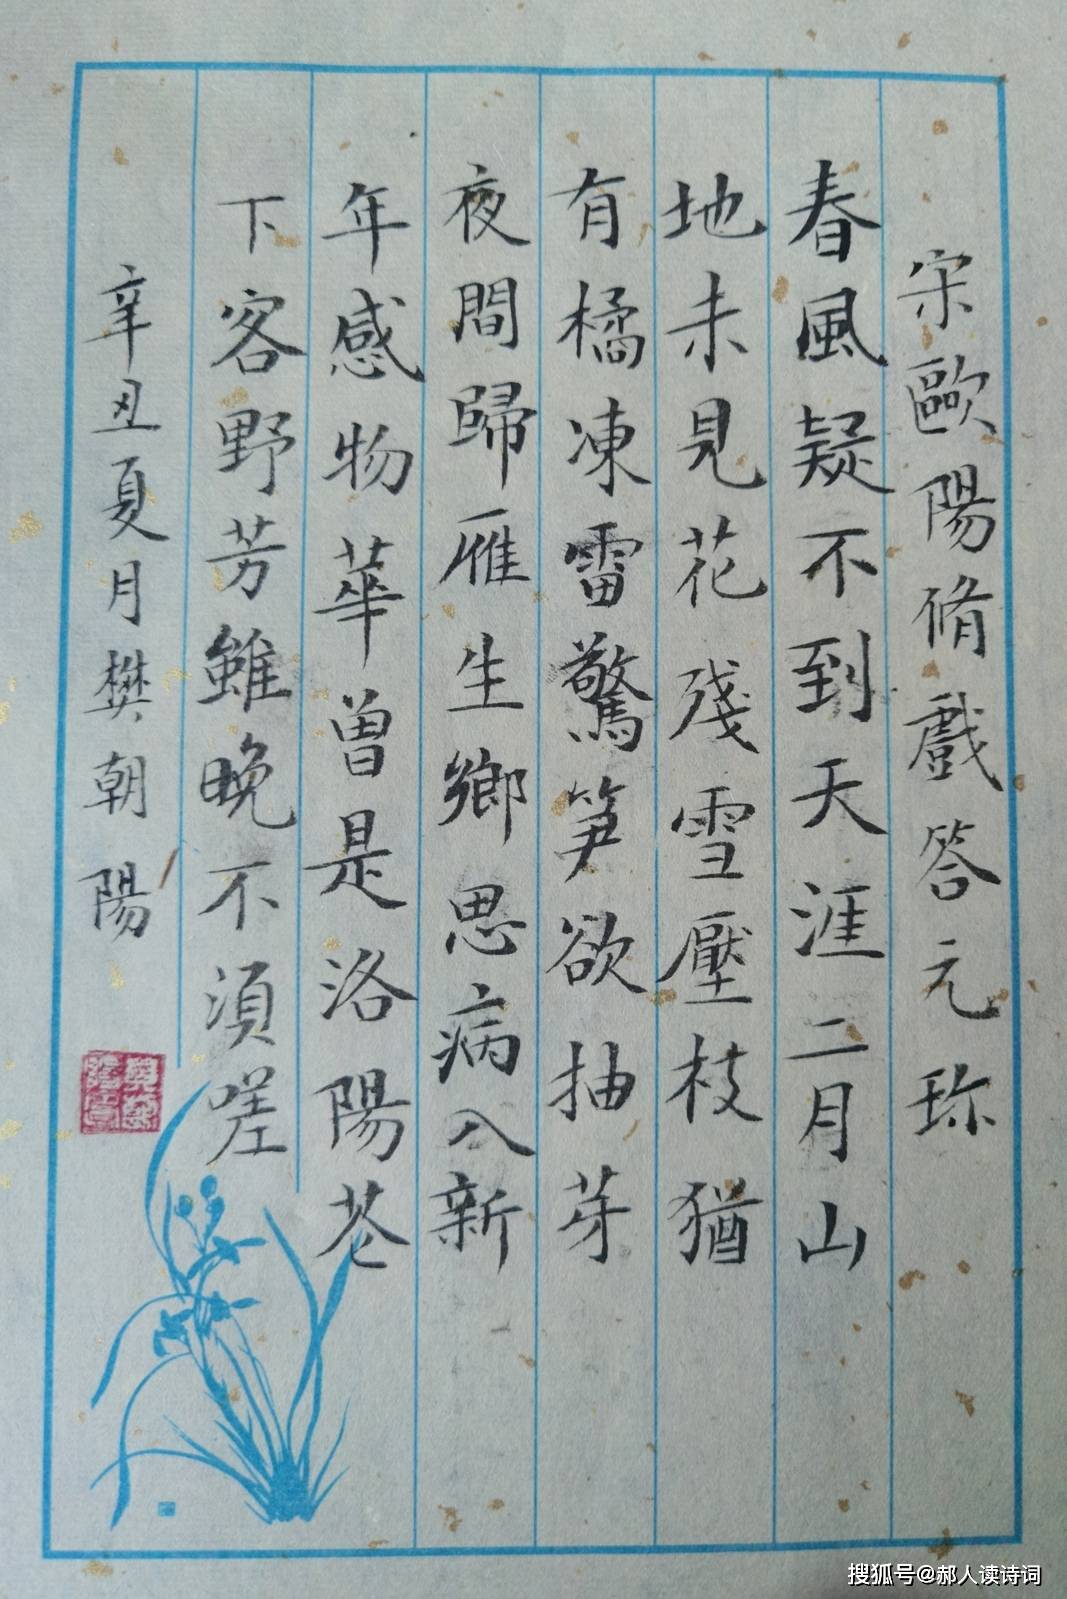 宋歐陽脩戲答元珎
春風疑不到天涯二月山
地未見花殘雪壓枝猶
有橘凍雷驚笋欲抽芽
夜間歸雁生鄉思病入新
年感物華曾是洛陽花
下客野芳雖晚不須嗟
辛丑夏月樊朝陽
搜狐号@郝人读诗词